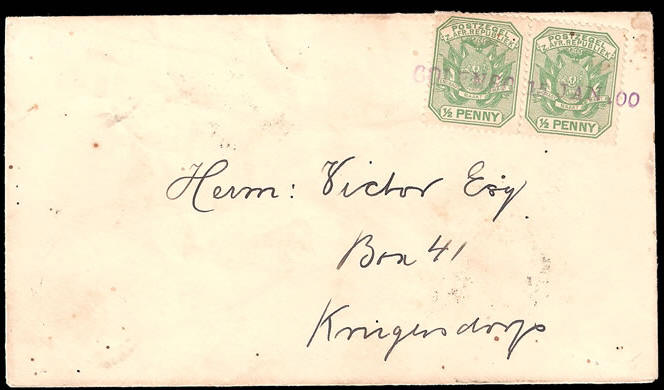 POSTZEGEL POSTZEGEL
Z. AFR. REPUBLIEK Z. AFR. REPUBLIEK
15 JAN. 00
½ PENNY ½ PENNY
Herm: Victor Esq
Box 41
Krugersdorp